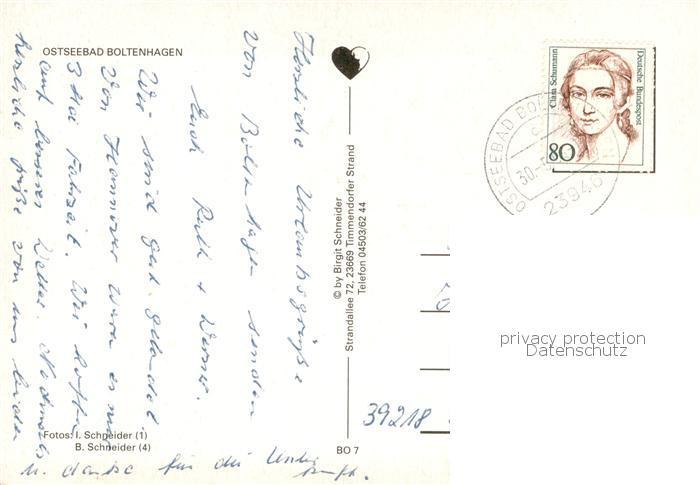 OSTSEEBAD BOLTENHAGEN
Herzliche Urlaubsgrüße
von Boltenhagen senden
Euch Ruth + Werner.
Wir sind gut gelandet.
Von Hannover waren es nur
3 Std Fahrzeit. Wir hoffen
auf besseres Wetter. Nochmals
herzliche Grüße von uns beiden
u. danke für die
Fotos: I. Schneider (1)
B. Schneider (4)
BO 7
© by Birgit Schneider
Strandallee 72, 23669 Timmendorfer Strand
Telefon 04503/62 44
Clara Schumann
Deutsche Bundespost
80
OSTSEEBAD BOL
30.
23946
39218
privacy protection
Datenschutz